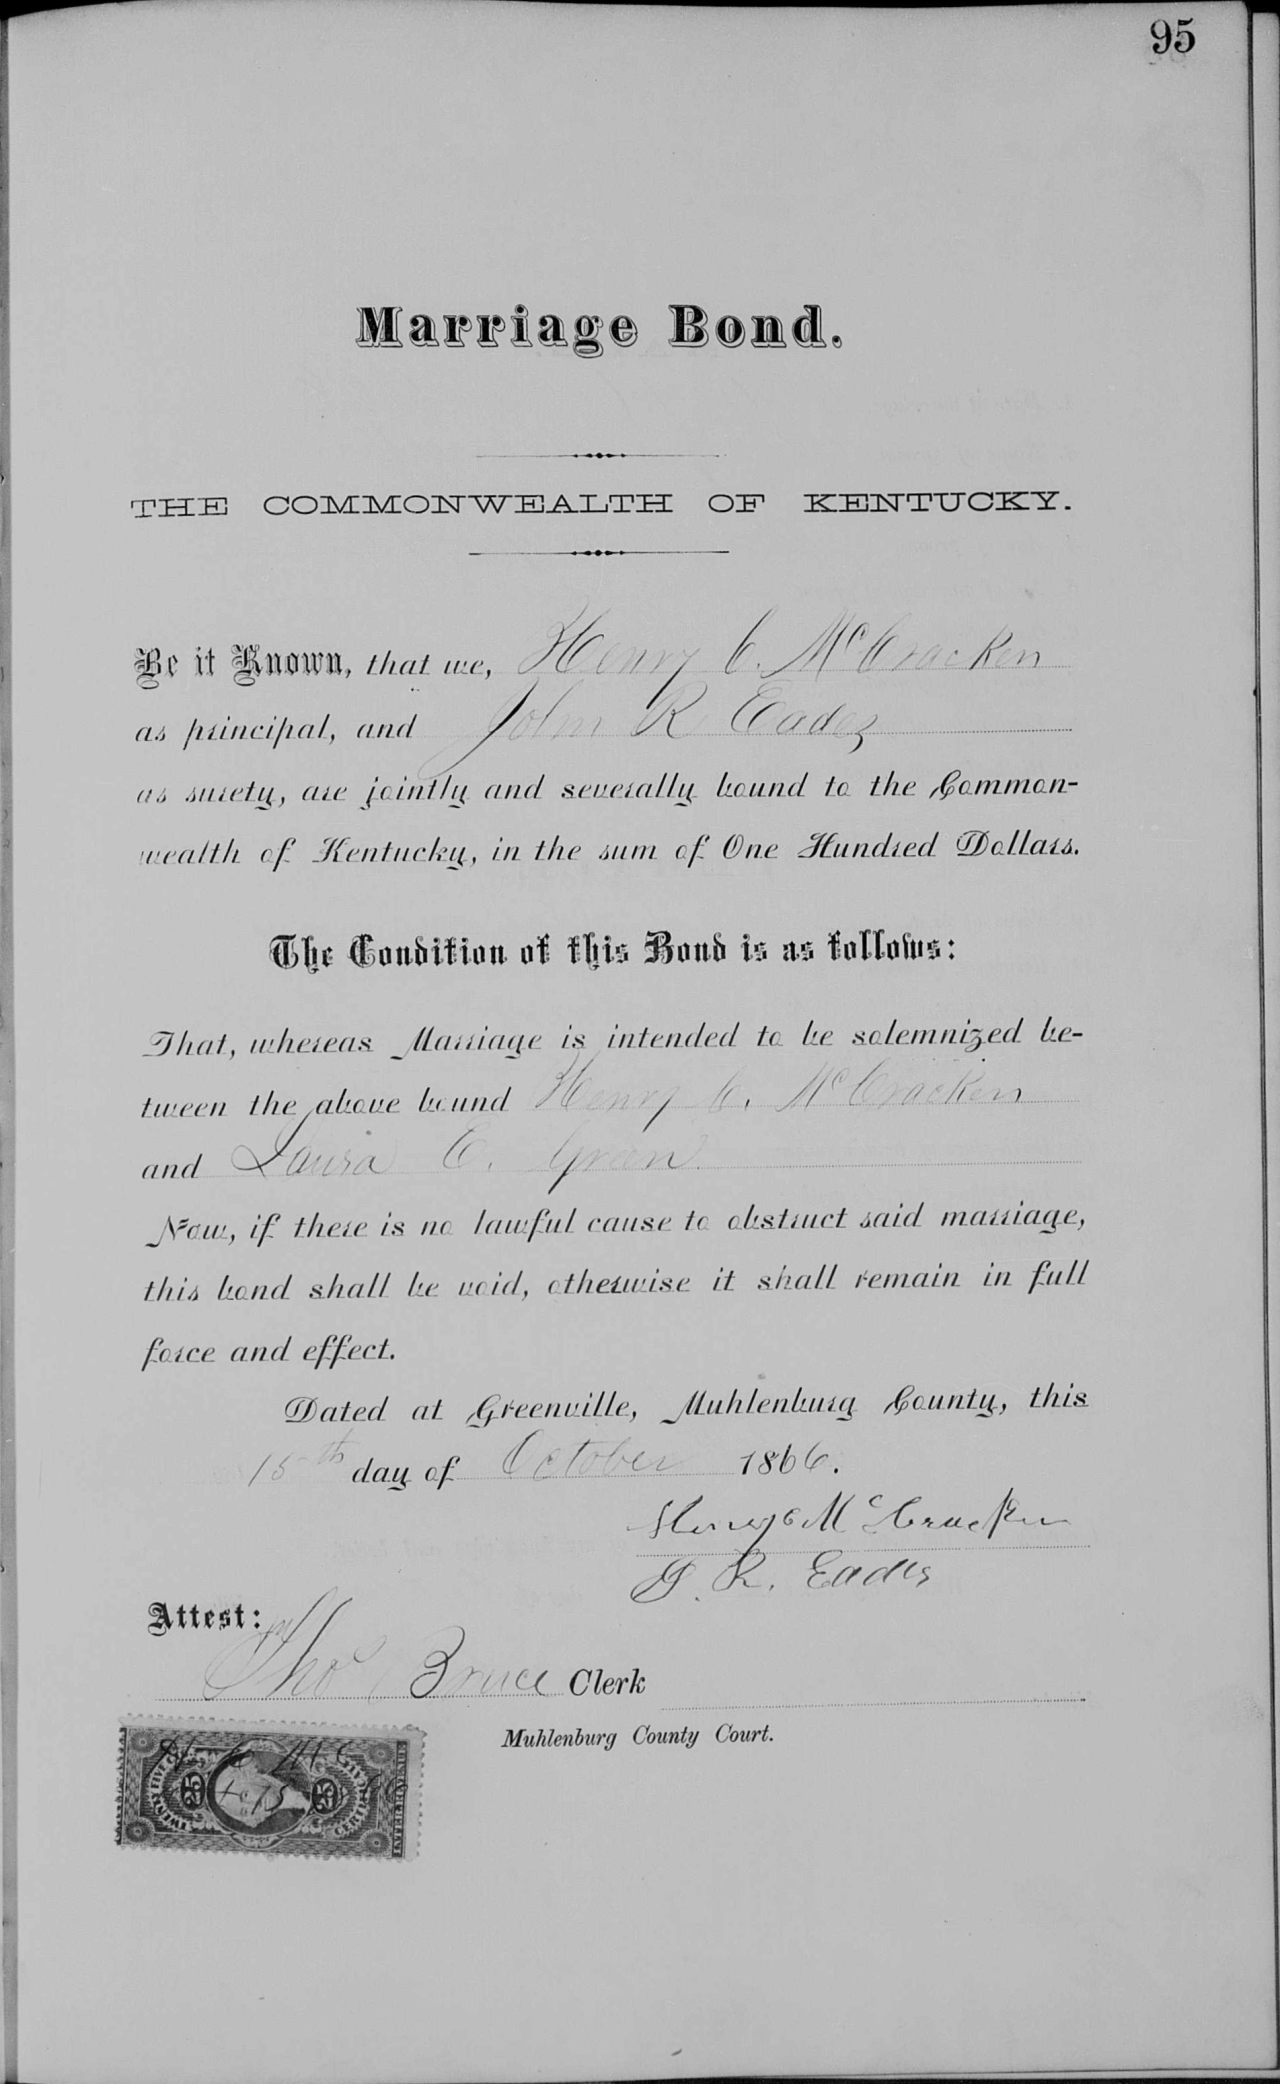 95
Marriage Bond.
THE COMMONWEALTH OF KENTUCKY.
Be it Known, that we, Henry C. McCracken
as principal, and John R Eades
as surety, are jointly and severally bound to the Common-
wealth of Kentucky, in the sum of One Hundred Dollars.
The Condition of this Bond is as follows:
That, whereas Marriage is intended to be solemnized be-
tween the above bound Henry C. McCracken
and Laura E. Green.
Now, if there is no lawful cause to obstruct said marriage,
this bond shall be void, otherwise it shall remain in full
force and effect.
Dated at Greenville, Muhlenburg County, this
15th day of October 1866.
Henry C McCracken
J. R. Eades
Attest:
Tho Bruce Clerk
Muhlenburg County Court.
TWENTY FIVE CERTIFICATE
25 25
INTER. REVENUE